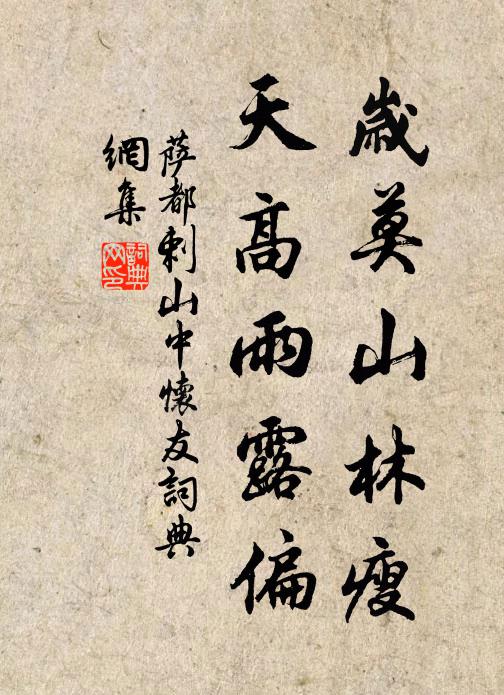 歲莫山林瘦
天高雨露偏
薩都剌山中懷友詞典
網集
詞典網印